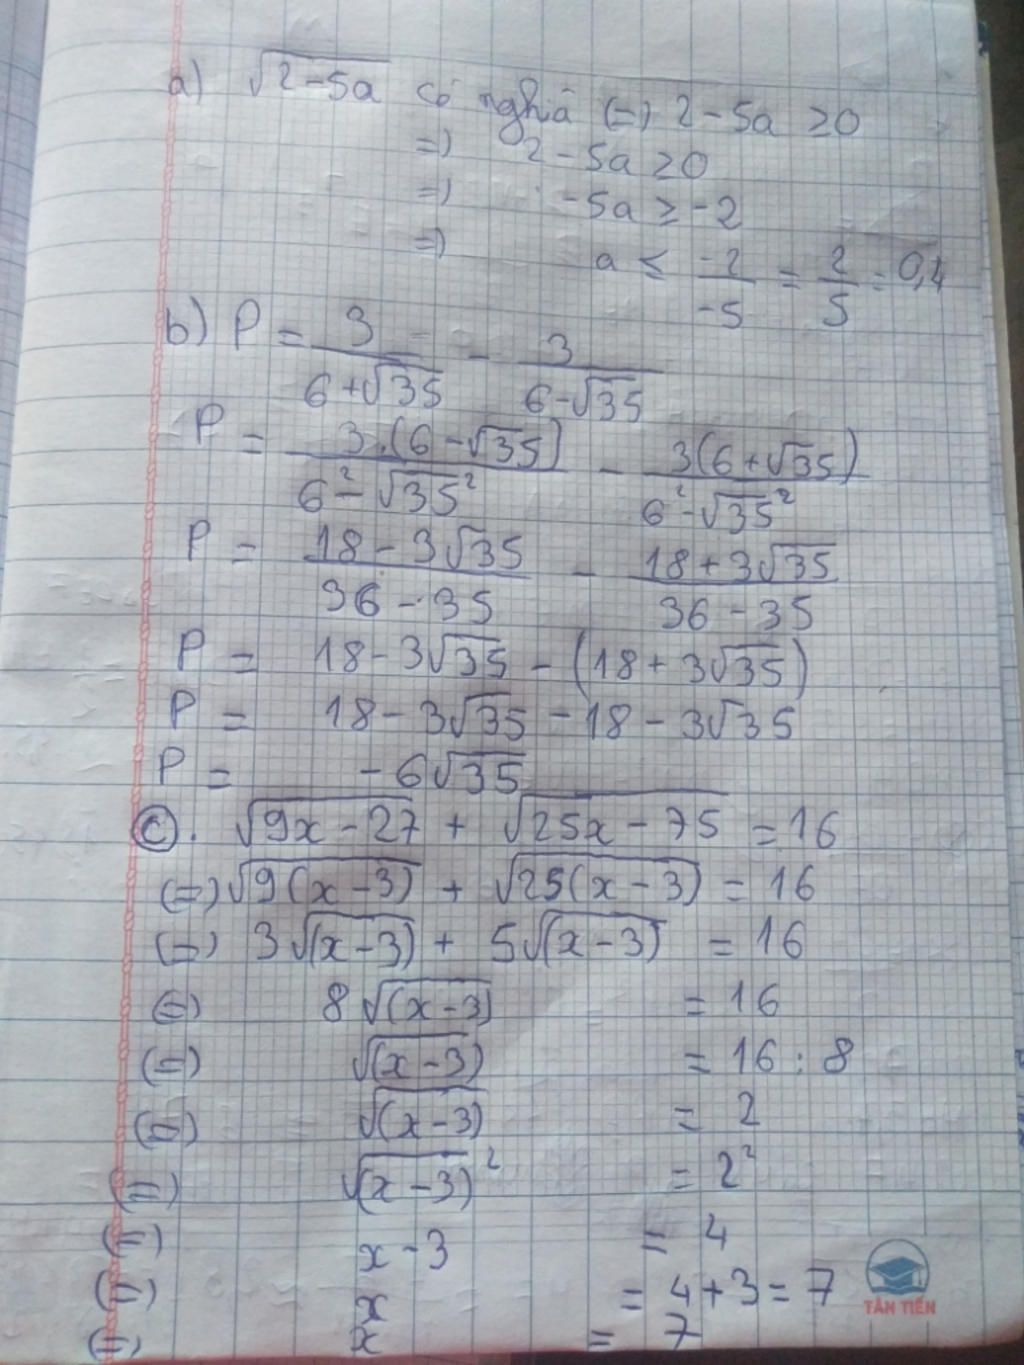 a) √(2-5a) có nghĩa (=) 2-5a ≥0
=) 2-5a ≥0
=) -5a ≥ -2
=) a ≤ -2/-5 = 2/5 = 0,4
b) P = 3/(6+√35) - 3/(6-√35)
P = 3.(6-√35)/(6²-√35²) - 3(6+√35)/(6²-√35²)
P = (18-3√35)/(36-35) - (18+3√35)/(36-35)
P = 18-3√35 - (18+3√35)
P = 18-3√35 -18-3√35
P = -6√35
c). √(9x-27) + √(25x-75) = 16
(=) √(9(x-3)) + √(25(x-3)) = 16
(=) 3√(x-3) + 5√(x-3) = 16
(=) 8√(x-3) = 16
(=) √(x-3) = 16 : 8
(=) √(x-3) = 2
(=) √(x-3)² = 2²
(=) x-3 = 4
(=) x = 4+3 = 7
(=) x = 7
TÂN TIẾN